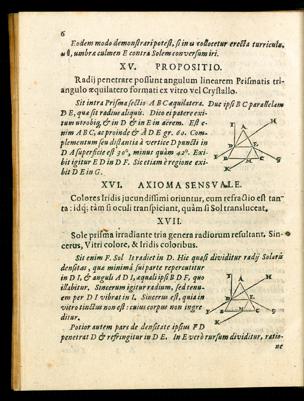 6
Eodem modo demonstrari potest, si in u collocetur erecta turricula,
u θ, umbræ culmen E contra Solem conversum iri.
XV. PROPOSITIO.
Radij penetrare possunt angulum linearem Prismatis tri-
angulo æquicete formati ex vitro vel Crystallo.
Sit intra Prisma sectio A B C æquilatera. Duc ipsi B C parallelam
D E, quæ sit radius aliquis. Dico et patere exi-
tum utrobiq, & in D & in E in aërem. Est e-
nim A B C, ac proinde & A D E gr. 60. Com-
plementum seu distantia à vertice D puncti in
D A superficie est 30°, minus quàm 42°. Exi-
bit igitur E D in D F. Sic etiam è regione exi-
bit D E in G.
XVI. AXIOMA SENSVALE.
Colores Iridis jucundissimi oriuntur, cum refractio est tan-
ta: idq; tàm si oculi transpiciant, quàm si Sol transluceat.
XVII.
Sole prisma irradiante tria genera radiorum resultant. Sin-
cerus, Vitri colore, & Iridis coloribus.
Sit enim F. Sol Irradiet in D. Hic quasi dividitur radij Solaris
densitas, quæ minimâ sui parte repercutitur
in D I, & angulo A D I, æquali ipsi B D F, quo
illabitur. Sincerum igitur radium, sed tenu-
em per D I vibrat in I. Sincerus est, quia in
vitro tinctus non est: cuius corpus non ingre-
ditur.
Potior autem pars de densitate ipsius F D
penetrat D & refringitur in D E. In E verò rursum dividitur, ratio-
ne